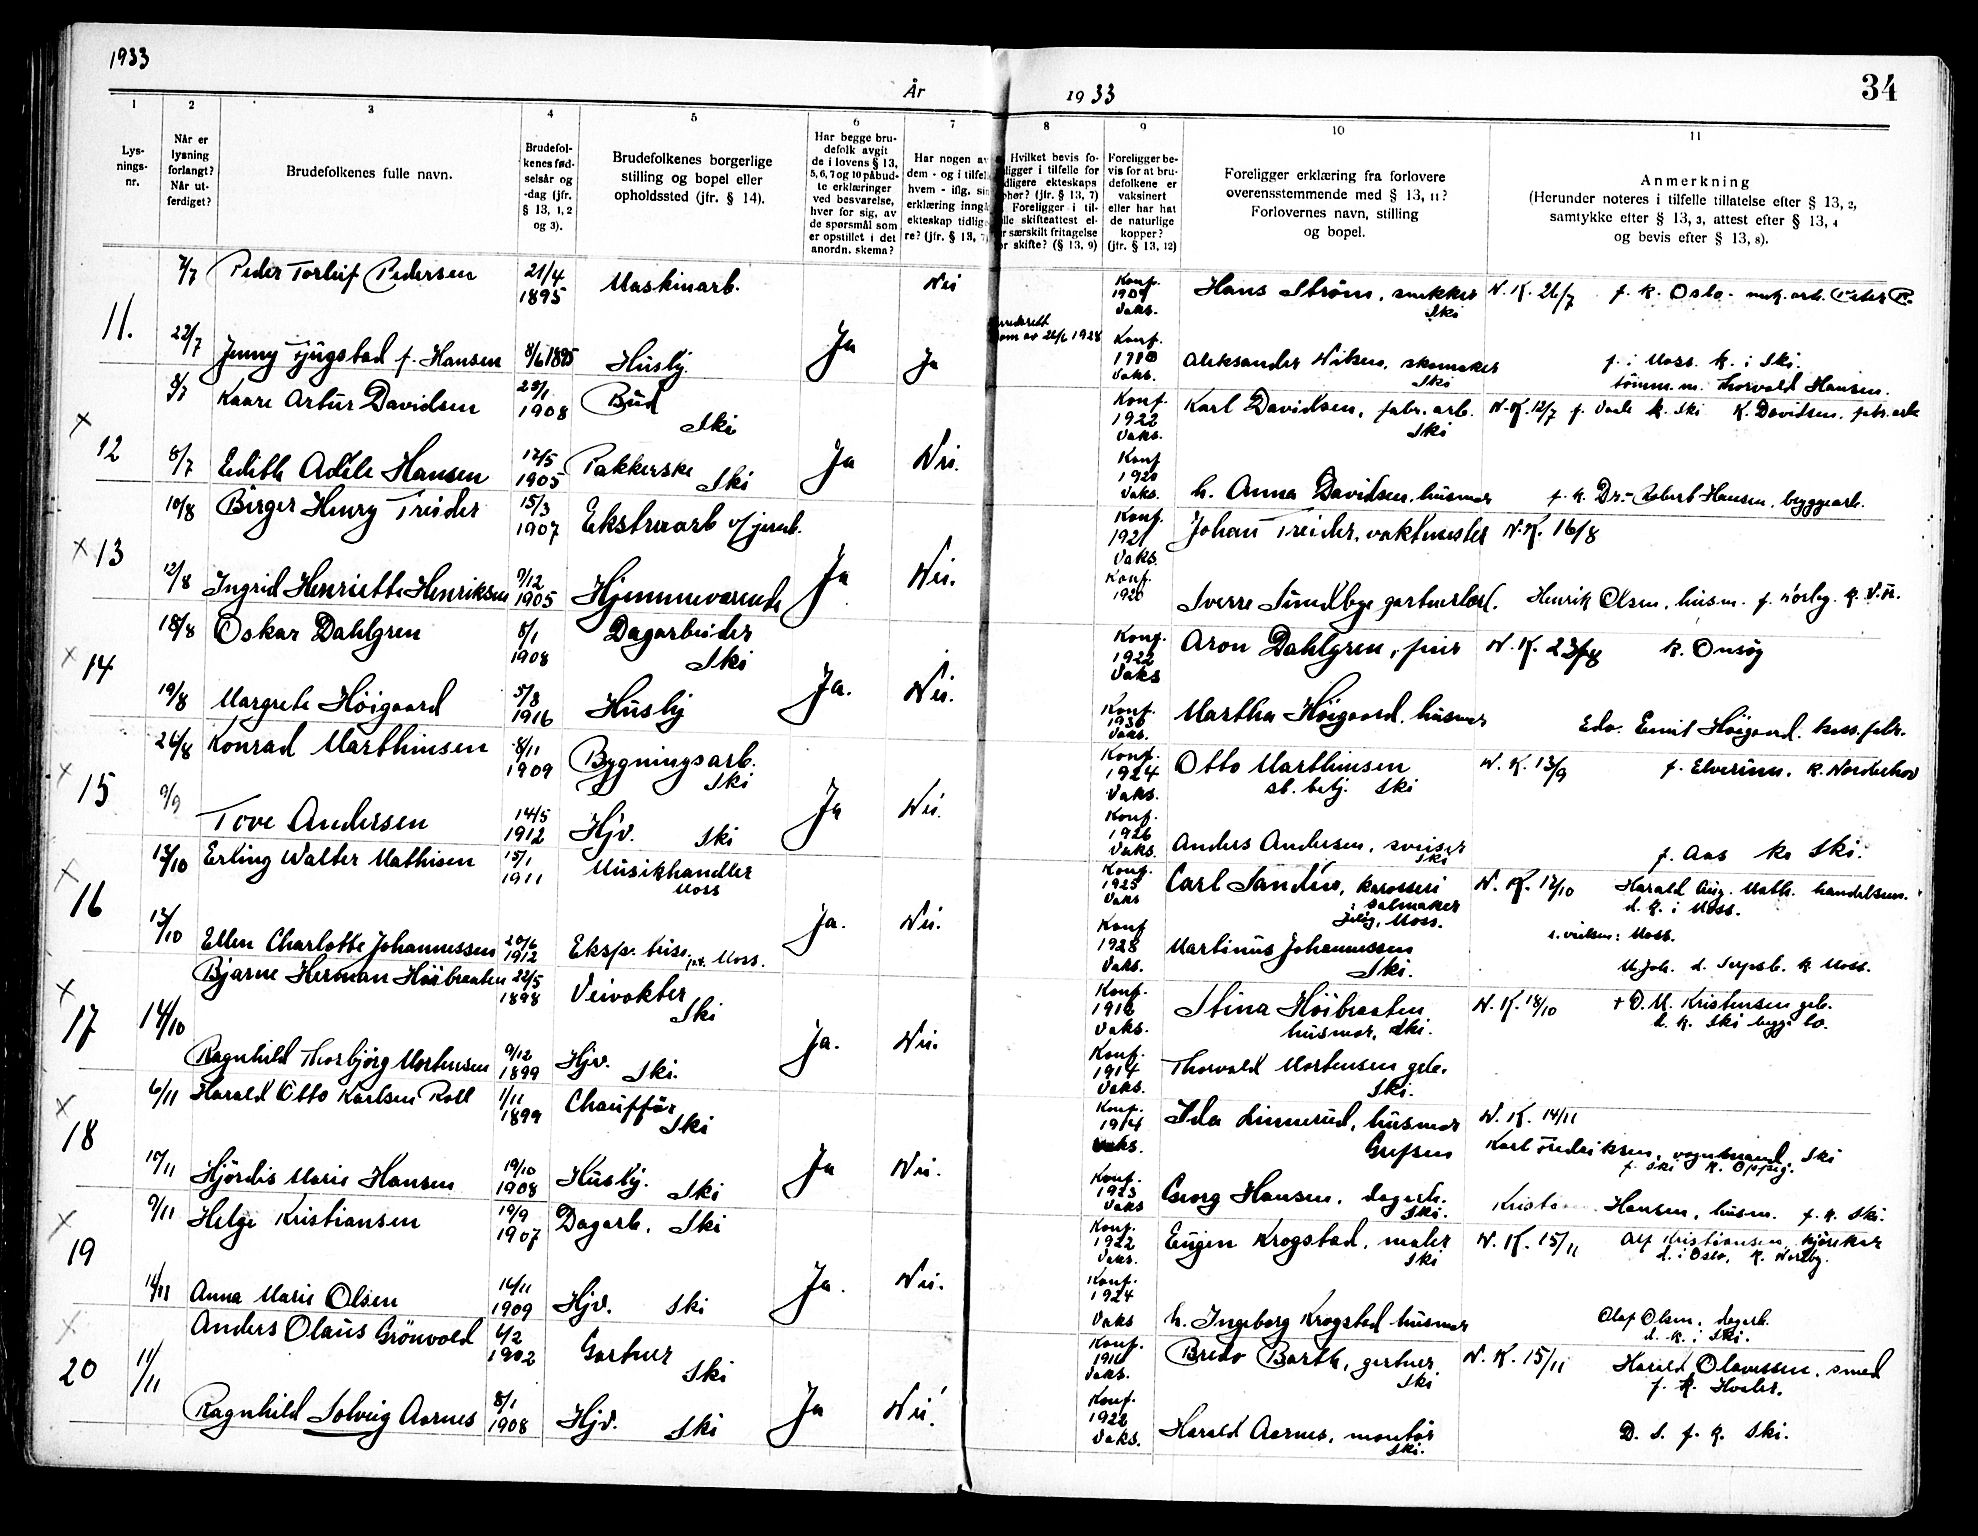 1933
År
1933
34
1
2
3
4
5
6
7
8
9
10
11
Lys-
nings-
nr.
Når er
lysning
forlangt?
Når ut-
ferdiget?
Brudefolkenes fulle navn.
Brudefol-
kenes fød-
selsår og
-dag (jfr.
§ 13, 1, 2
og 3).
Brudefolkenes borgerlige
stilling og bopel eller
opholdssted (jfr. § 14).
Har begge bru-
defolk avgit
de i lovens § 13,
5, 6, 7 og 10 påbud-
te erklæringer
ved besvarelse,
hver for sig, av
de spørsmål som
er opstillet i det
anordn. skema?
Har nogen av
dem - og i tilfel
hvem - iflg. sin
erklæring inngå
ekteskap tidlig
re? (jfr. § 13, 7)
Hvilket bevis fo-
ligger i tilfelle for
dligere ekteskaps
phør? (jfr. § 13, 7)
Foreligger i til-
lle skifteattest el-
r særskilt fritagelse
or skifte? (§ 13, 9)
Foreligger be-
vis for at bru-
defolkene er
vaksinert
eller har hat
de naturlige
kopper?
(jfr. § 13, 12)
Foreligger erklæring fra forlovere
overensstemmende med § 13, 11?
Forlovernes navn, stilling
og bopel.
Anmerkning
(Herunder noteres i tilfelle tillatelse efter § 13, 2,
samtykke efter § 13, 3, attest efter § 13, 4
og bevis efter § 13, 8).
11.
7/7 Peder Torleif Pedersen 21/4 1895 Maskinarb. Nei Konf. Vaks. Hans Strøm, snekker Ski N. K. 26/7 f. k. Oslo
22/7 Jenny f. Hansen 8/6 1895 Husby. Ja Ja 26/6 1928 Konf. Vaks. Aleksander Nilsen, skomaker Ski f. i Moss k. i Ski.
Thorvald Hansen.
x 12
8/7 Kaare Artur Davidsen 1908 Bud Ski Konf. 1922 Vaks. Karl Davidsen, fabr. arb. Ski N. K. 12/7 k. Ski K. Davidsen, fabr. arb
8/7 Edith Adele Hansen 12/5 1905 Pakkerske Ski Ja Nei. Konf Vaks. h. Anna Davidsen, husmor Robert Hansen, byggearb.
x 13
10/8 Birger Henry Treider 15/3 1907 Ekstraarb v/ jernb. Konf. 1921 Vaks. Johan Treider, vaktmester N. K. 16/8
12/8 Ingrid Henriette Henriksen 9/12 1905 Hjemmeværende Ja Nei. Konf. 1920 Sverre Sundbye Henrik Olsen, husm.
x 14
18/8 Oskar Dahlgren 8/1 1908 Dagarbeider Ski Konf. 1922 Vaks Aron Dahlgren, N. K. 23/8 k. Onsøy
19/8 Margrete Höigaard 5/8 1916 Husby Ja. Nei. Konf. 1930 Vaks. Martha Höigaard, husmor Edv. Emil Höigaard.
x 15
26/8 Konrad Marthinsen 8/11 1909 Bygningsarb. Ski Konf. 1924 Vaks. Otto Marthinsen st. betj. Ski N. K. 13/9 f. Elverum, k. Norderhov
9/9 Tove Andersen 14/5 1912 Hjv. Ski Ja Nei. Konf. 1926 Vaks. Anders Andersen, sveiser Ski f. Aas k. Ski.
x 16
13/10 Erling Walter Mathisen 15/1 1911 Musikhandler Moss Konf. 1925 Vaks Carl Sandén, karosseri salmaker Jeløy, Moss. N. K. 17/10 Harald Aug. Math. handelsm.
d. k. i Moss.
13/10 Ellen Charlotte Johannessen 20/6 1912 Moss. Ja. Nei. Konf 1928 Vaks. Martinus Johannessen Ski. Moss.
M Joh. d. Sarpsb. k. Moss.
x 17
14/10 Bjarne Herman Höibraaten 22/5 1898 Veivokter Ski Konf. Vaks. Stina Höibraaten husmor, Ski. N. K. 18/10 + O. M. Kristensen
Ragnhild Thorbjörg Mortensen 9/12 1899 Hjv. Ski. Ja. Nei. Konf. 1914 Vaks. Thorvald Mortensen Ski.
x 18
6/11 Harald Otto Karlsen Roll 1/11 1899 Chauffør Ski Konf. 1914 Vaks. Ida Linnerud, husmor Grefsen N. K. 14/11
Karl Fredriksen, Ski
10/11 Hjördis Marie Hansen 19/10 1908 Husby. Ski Ja Nei. Konf. 1923 Vaks Georg Hansen, dagarb. Ski. Hansen, husm. f. k. Ski.
x 19
9/11 Helge Kristiansen 19/9 1907 Dagarb. Ski Konf. 1922 Vaks. Eugen Krogstad, maler Ski N. K. 15/11 Alf Kristiansen
d. i Oslo, k. Nordby.
14/11 Anna Marie Olsen 14/11 1909 Hjv. Ski Ja. Nei. Konf. 1924 Vaks h. Ingeborg Krogstad husmor Olaf Olsen, dagarb.
d. k. i Ski.
x 20
11/11 Anders Olaus Grönvold 6/2 1902 Gartner Ski Konf. Vaks. Bredo Barth, gartner Ski N. K. 15/11 Harald Olavessen, smed
f. k. Hvaler.
Ragnhild Solveig Aarnes 8/1 1908 Hjv. Ski Ja Nei. Konf. 1922 Vaks. Harald Aarnes, montør Ski. D. S. f. k. Ski.